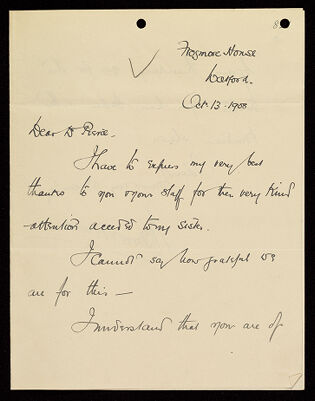 8
Frogmore House
Watford.
Oct. 13. 1908
Dear Dr
I have to express my very best
thanks to you & your staff for their very kind
attention accorded to my sister.
I cannot say how grateful we
are for this —
I understand that you are of